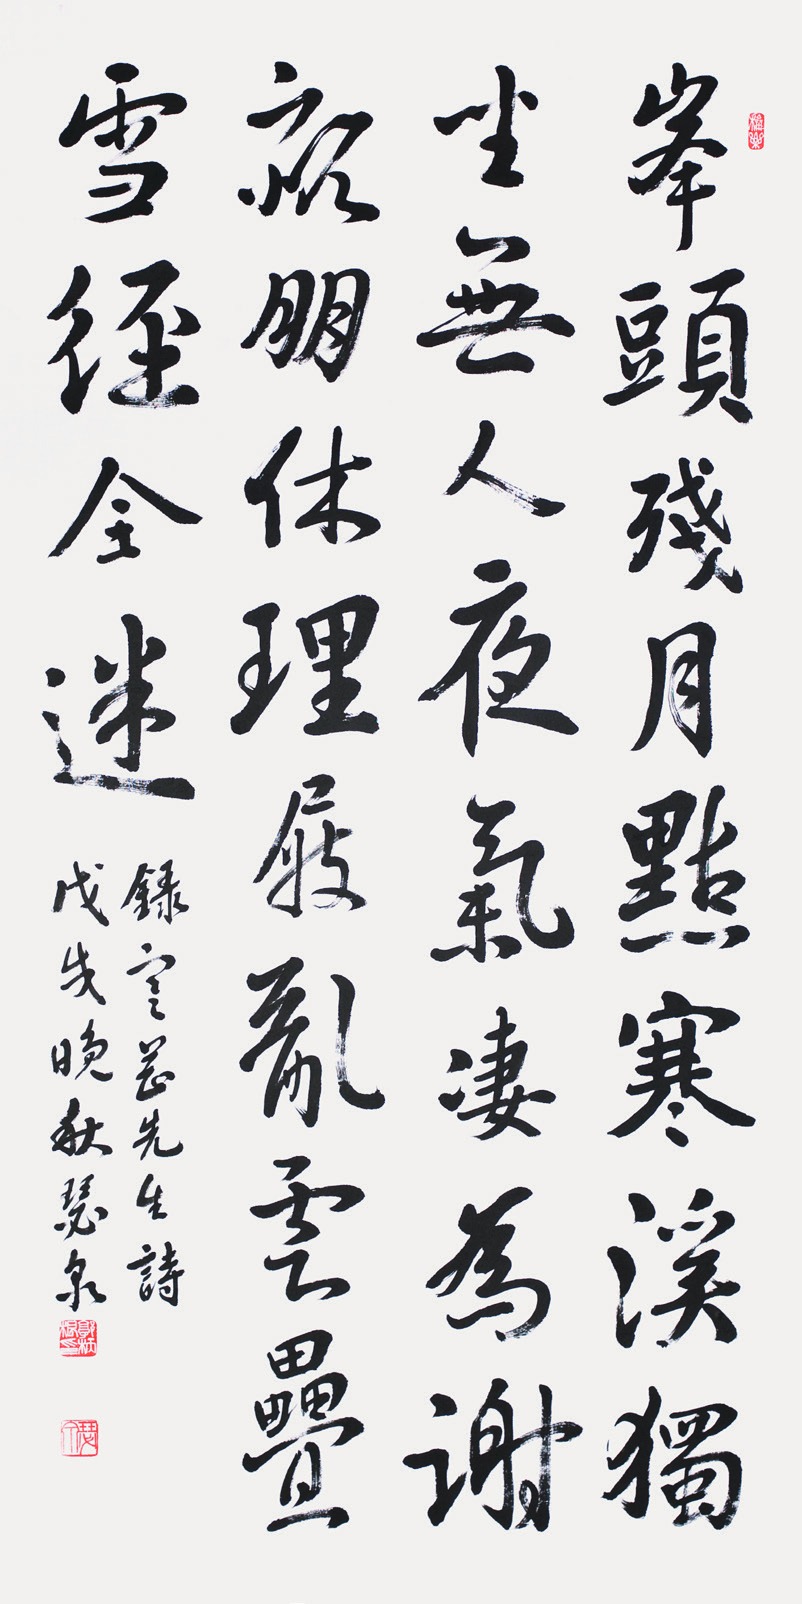 峯頭殘月點寒溪獨
坐無人夜氣凄為謝
親朋休理屐亂雲疊
雪徑全迷
錄寄萍先生詩
戊戌晚秋瑟泉